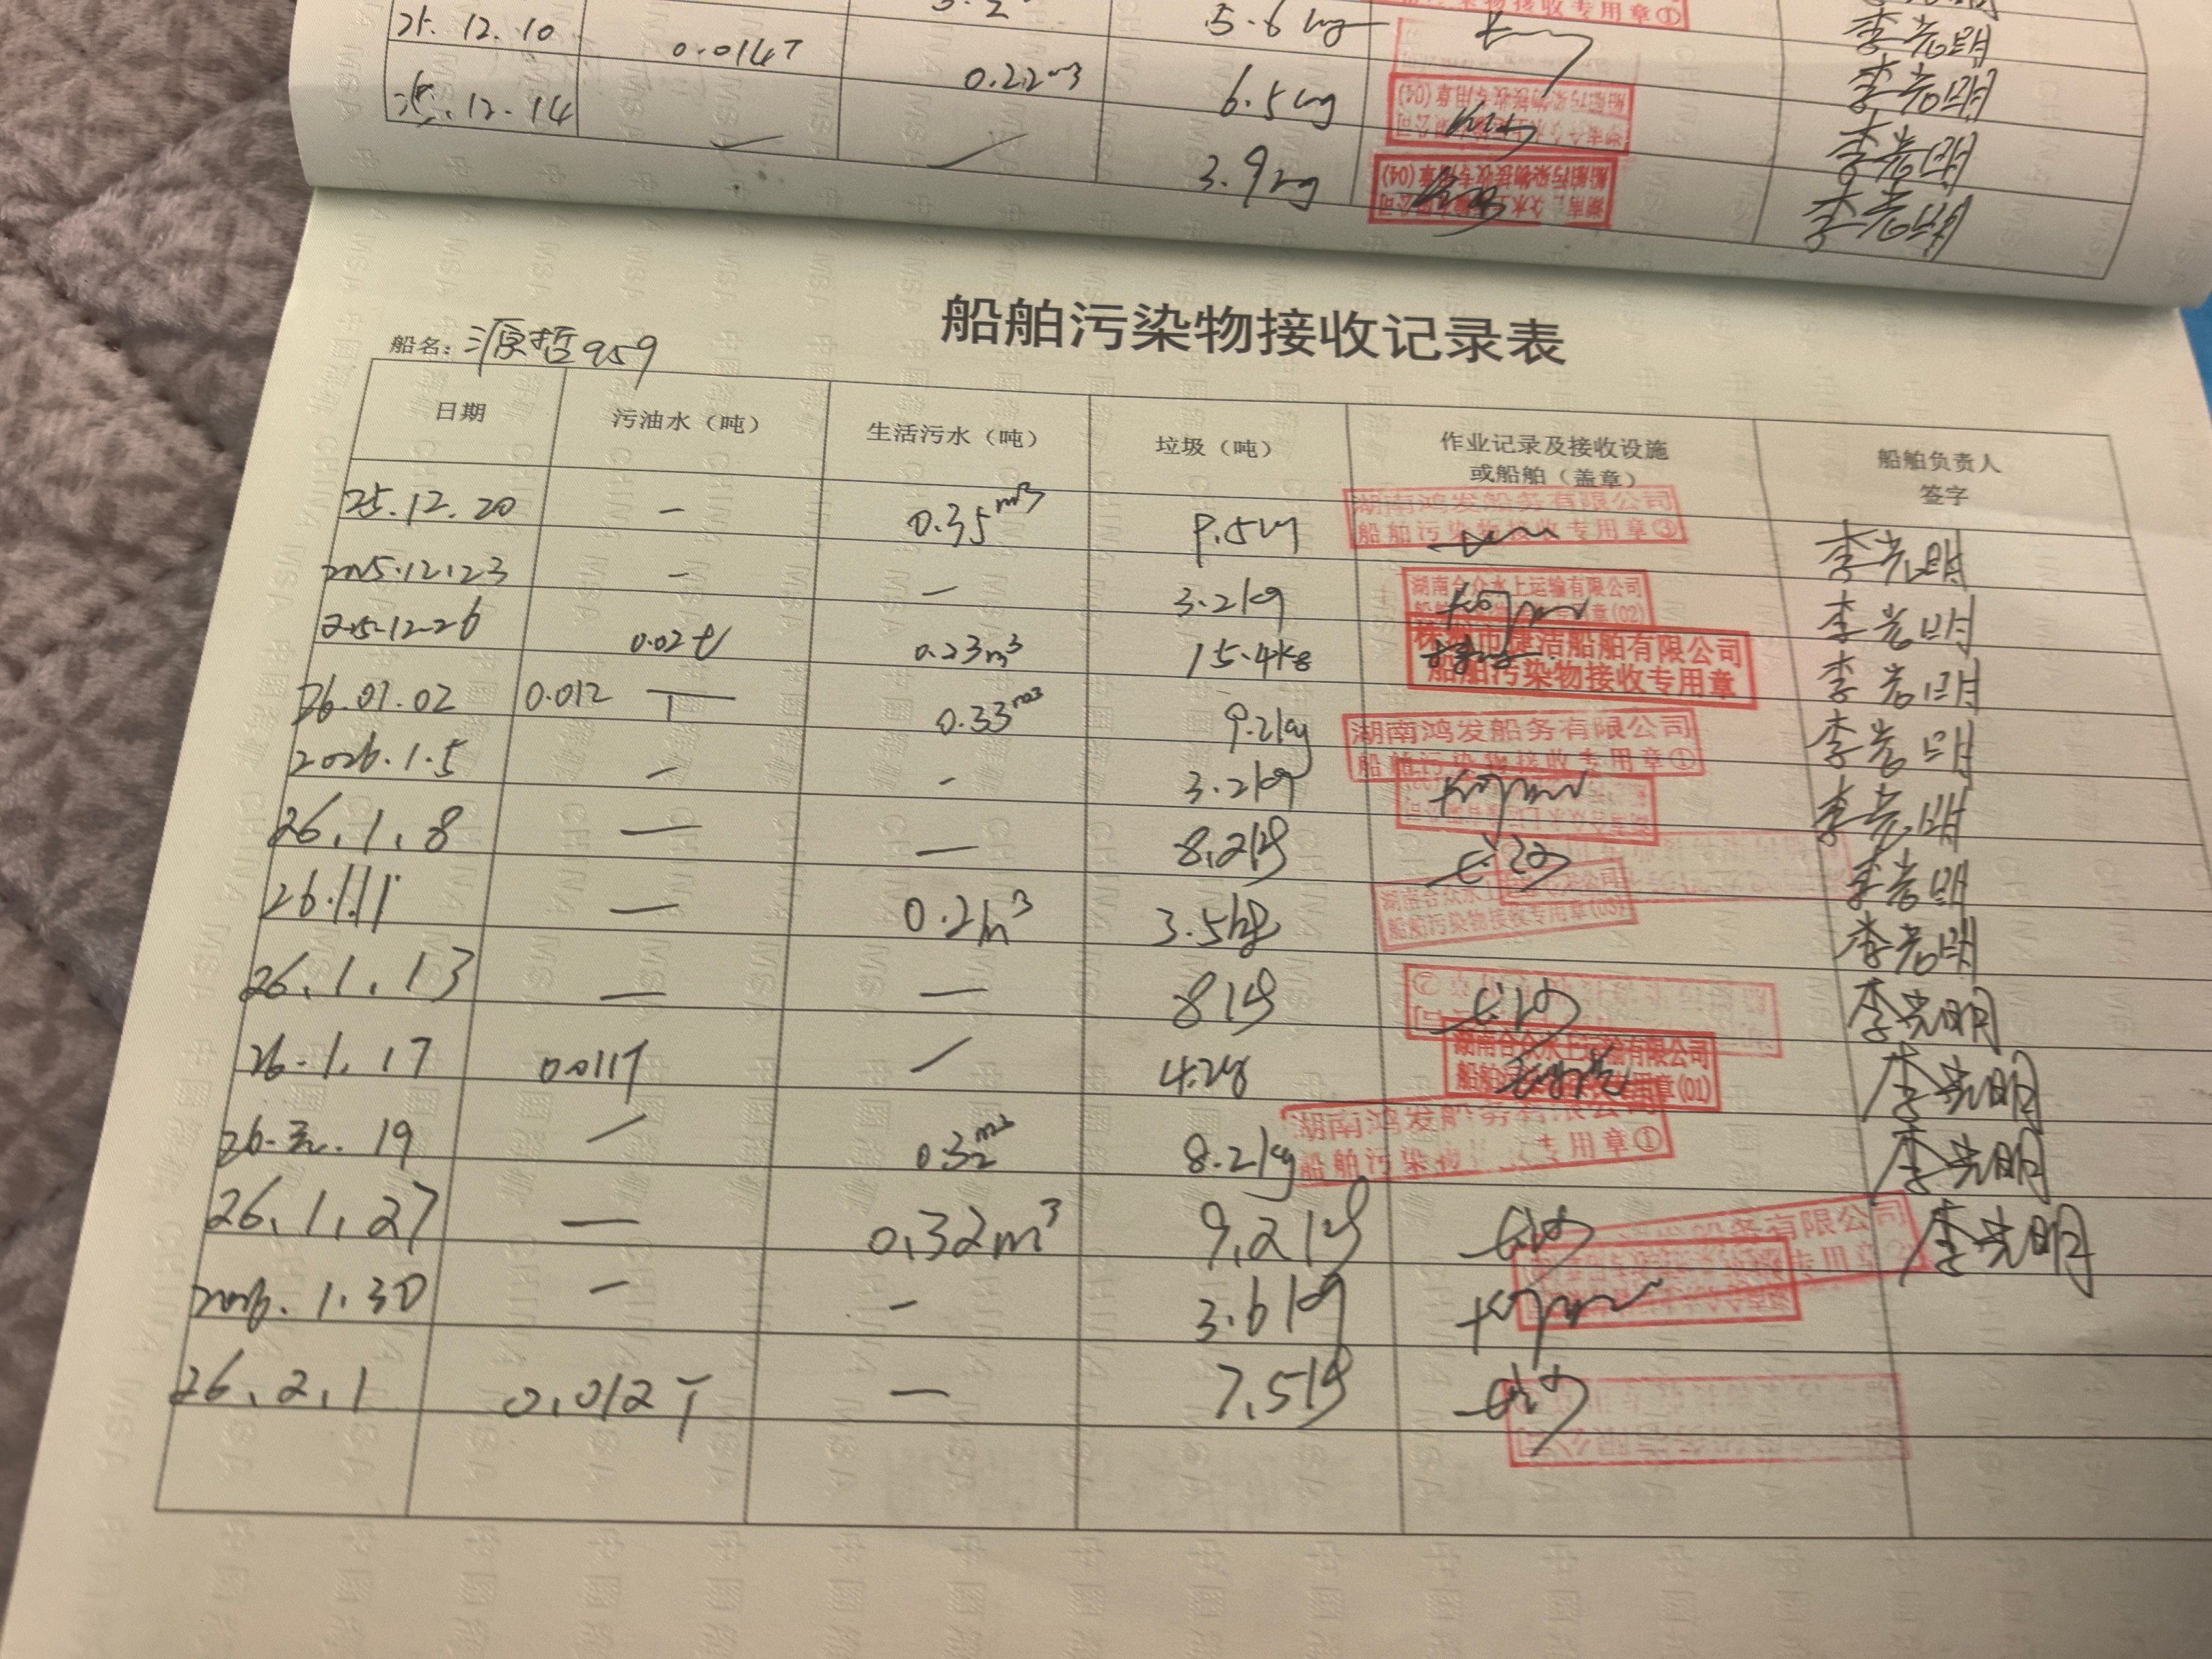 25.12.10 0.014T 0.22m3 5.6kg 李光明
25.12.14 6.5kg 船舶污染物接收专用章(04) 李光明
3.9kg 船舶污染物接收专用章(04) 李光明
船舶污染物接收记录表
船名：源哲959
日期 污油水（吨） 生活污水（吨） 垃圾（吨） 作业记录及接收设施或船舶（盖章） 船舶负责人签字
25.12.20 - 0.35m3 9.5kg 湖南鸿发船务有限公司 船舶污染物接收专用章③ 李光明
2025.12.23 - - 3.2kg 湖南合众水上运输有限公司 李光明
2025.12.26 0.02t 0.23m3 15.4kg 株洲市健洁船舶有限公司 船舶污染物接收专用章 李光明
26.01.02 0.012T 0.33m3 9.2kg 湖南鸿发船务有限公司 船舶污染物接收专用章① 李光明
2026.1.5 - - 3.2kg 李光明
26.1.8 — — 8.2kg 李光明
26.1.11 — 0.2m3 3.5kg 湖南合众水上运输有限公司 船舶污染物接收专用章(03) 李光明
26.1.13 — — 8kg 李光明
26.1.17 0.011T / 4.2kg 湖南合众水上运输有限公司 李光明
26. 19 / 8.2kg 湖南鸿发船务有限公司 专用章① 李光明
26.1.27 — 0.32m3 9.2kg 船务有限公司 李光明
2026.1.30 - - 3.6kg
26.2.1 0.012T — 7.5kg